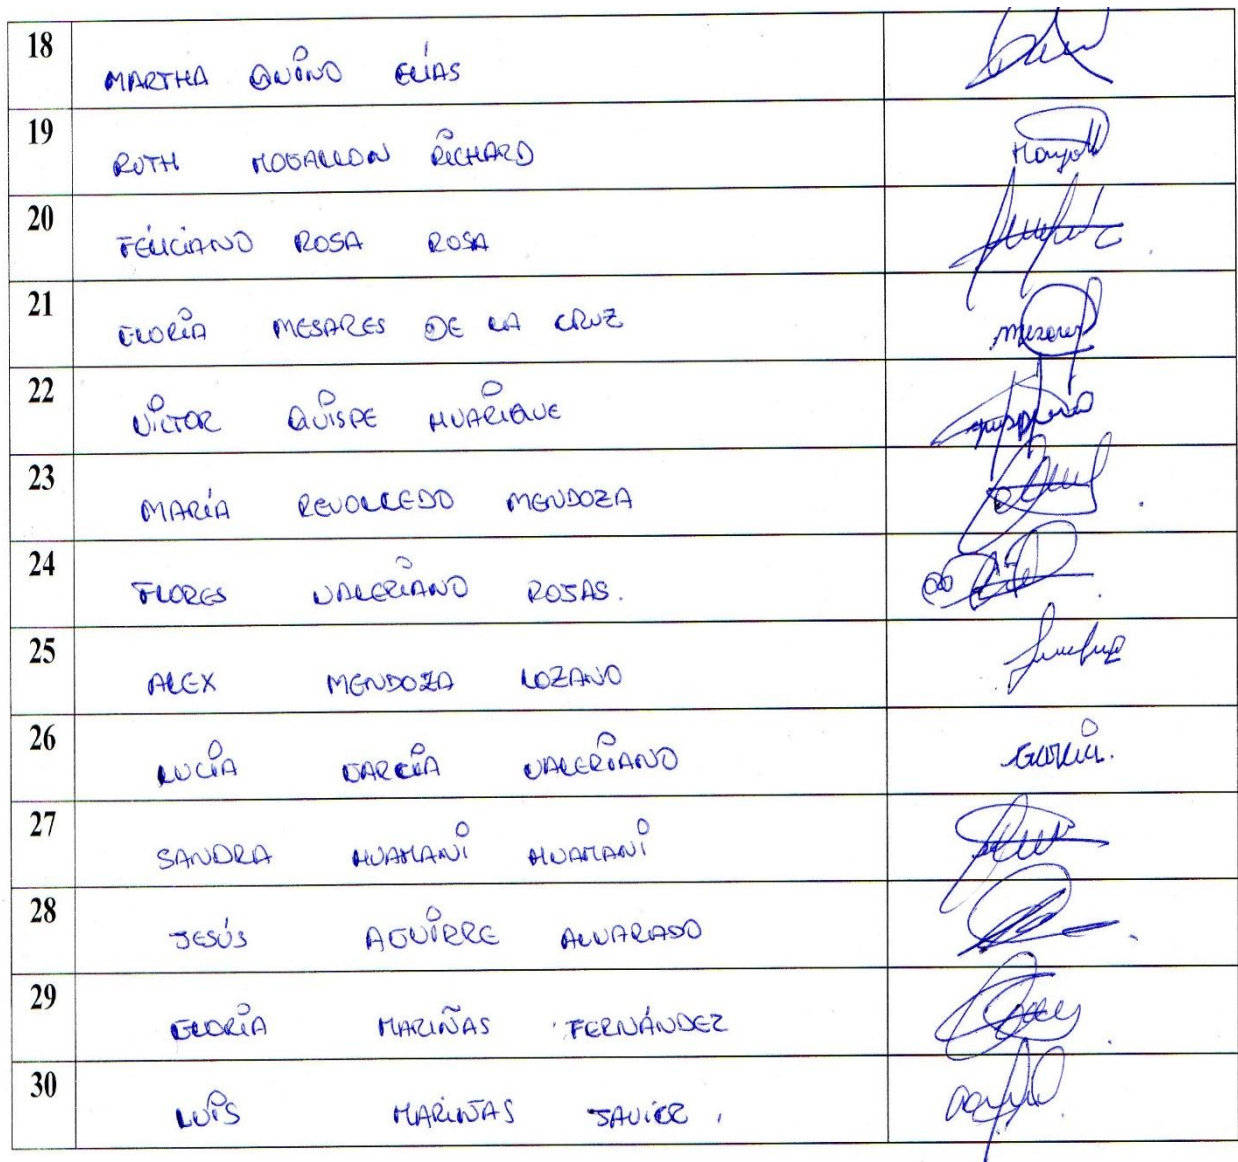 18 MARTHA QUINO ELÍAS
19 RUTH MOGALLON RICHARD
20 FELICIANO ROSA ROSA
21 GLORIA MESARES DE LA CRUZ
22 VICTOR QUISPE HUARIQUE
23 MARÍA REVOLLEDO MENDOZA
24 FLORES VALERIANO ROJAS.
25 ALEX MENDOZA LOZANO
26 LUCIA GARCIA VALERIANO Garcia.
27 SANDRA HUAMANI HUAMANI
28 JESÚS AGUIRRE ALVARADO
29 GLORIA MARIÑAS FERNÁNDEZ
30 LUIS MARIÑAS JAVIER.